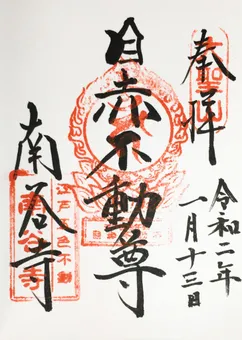 奉拝
令和二年
一月十三日
目赤不動尊
南谷寺
江戸五色不動
南谷寺